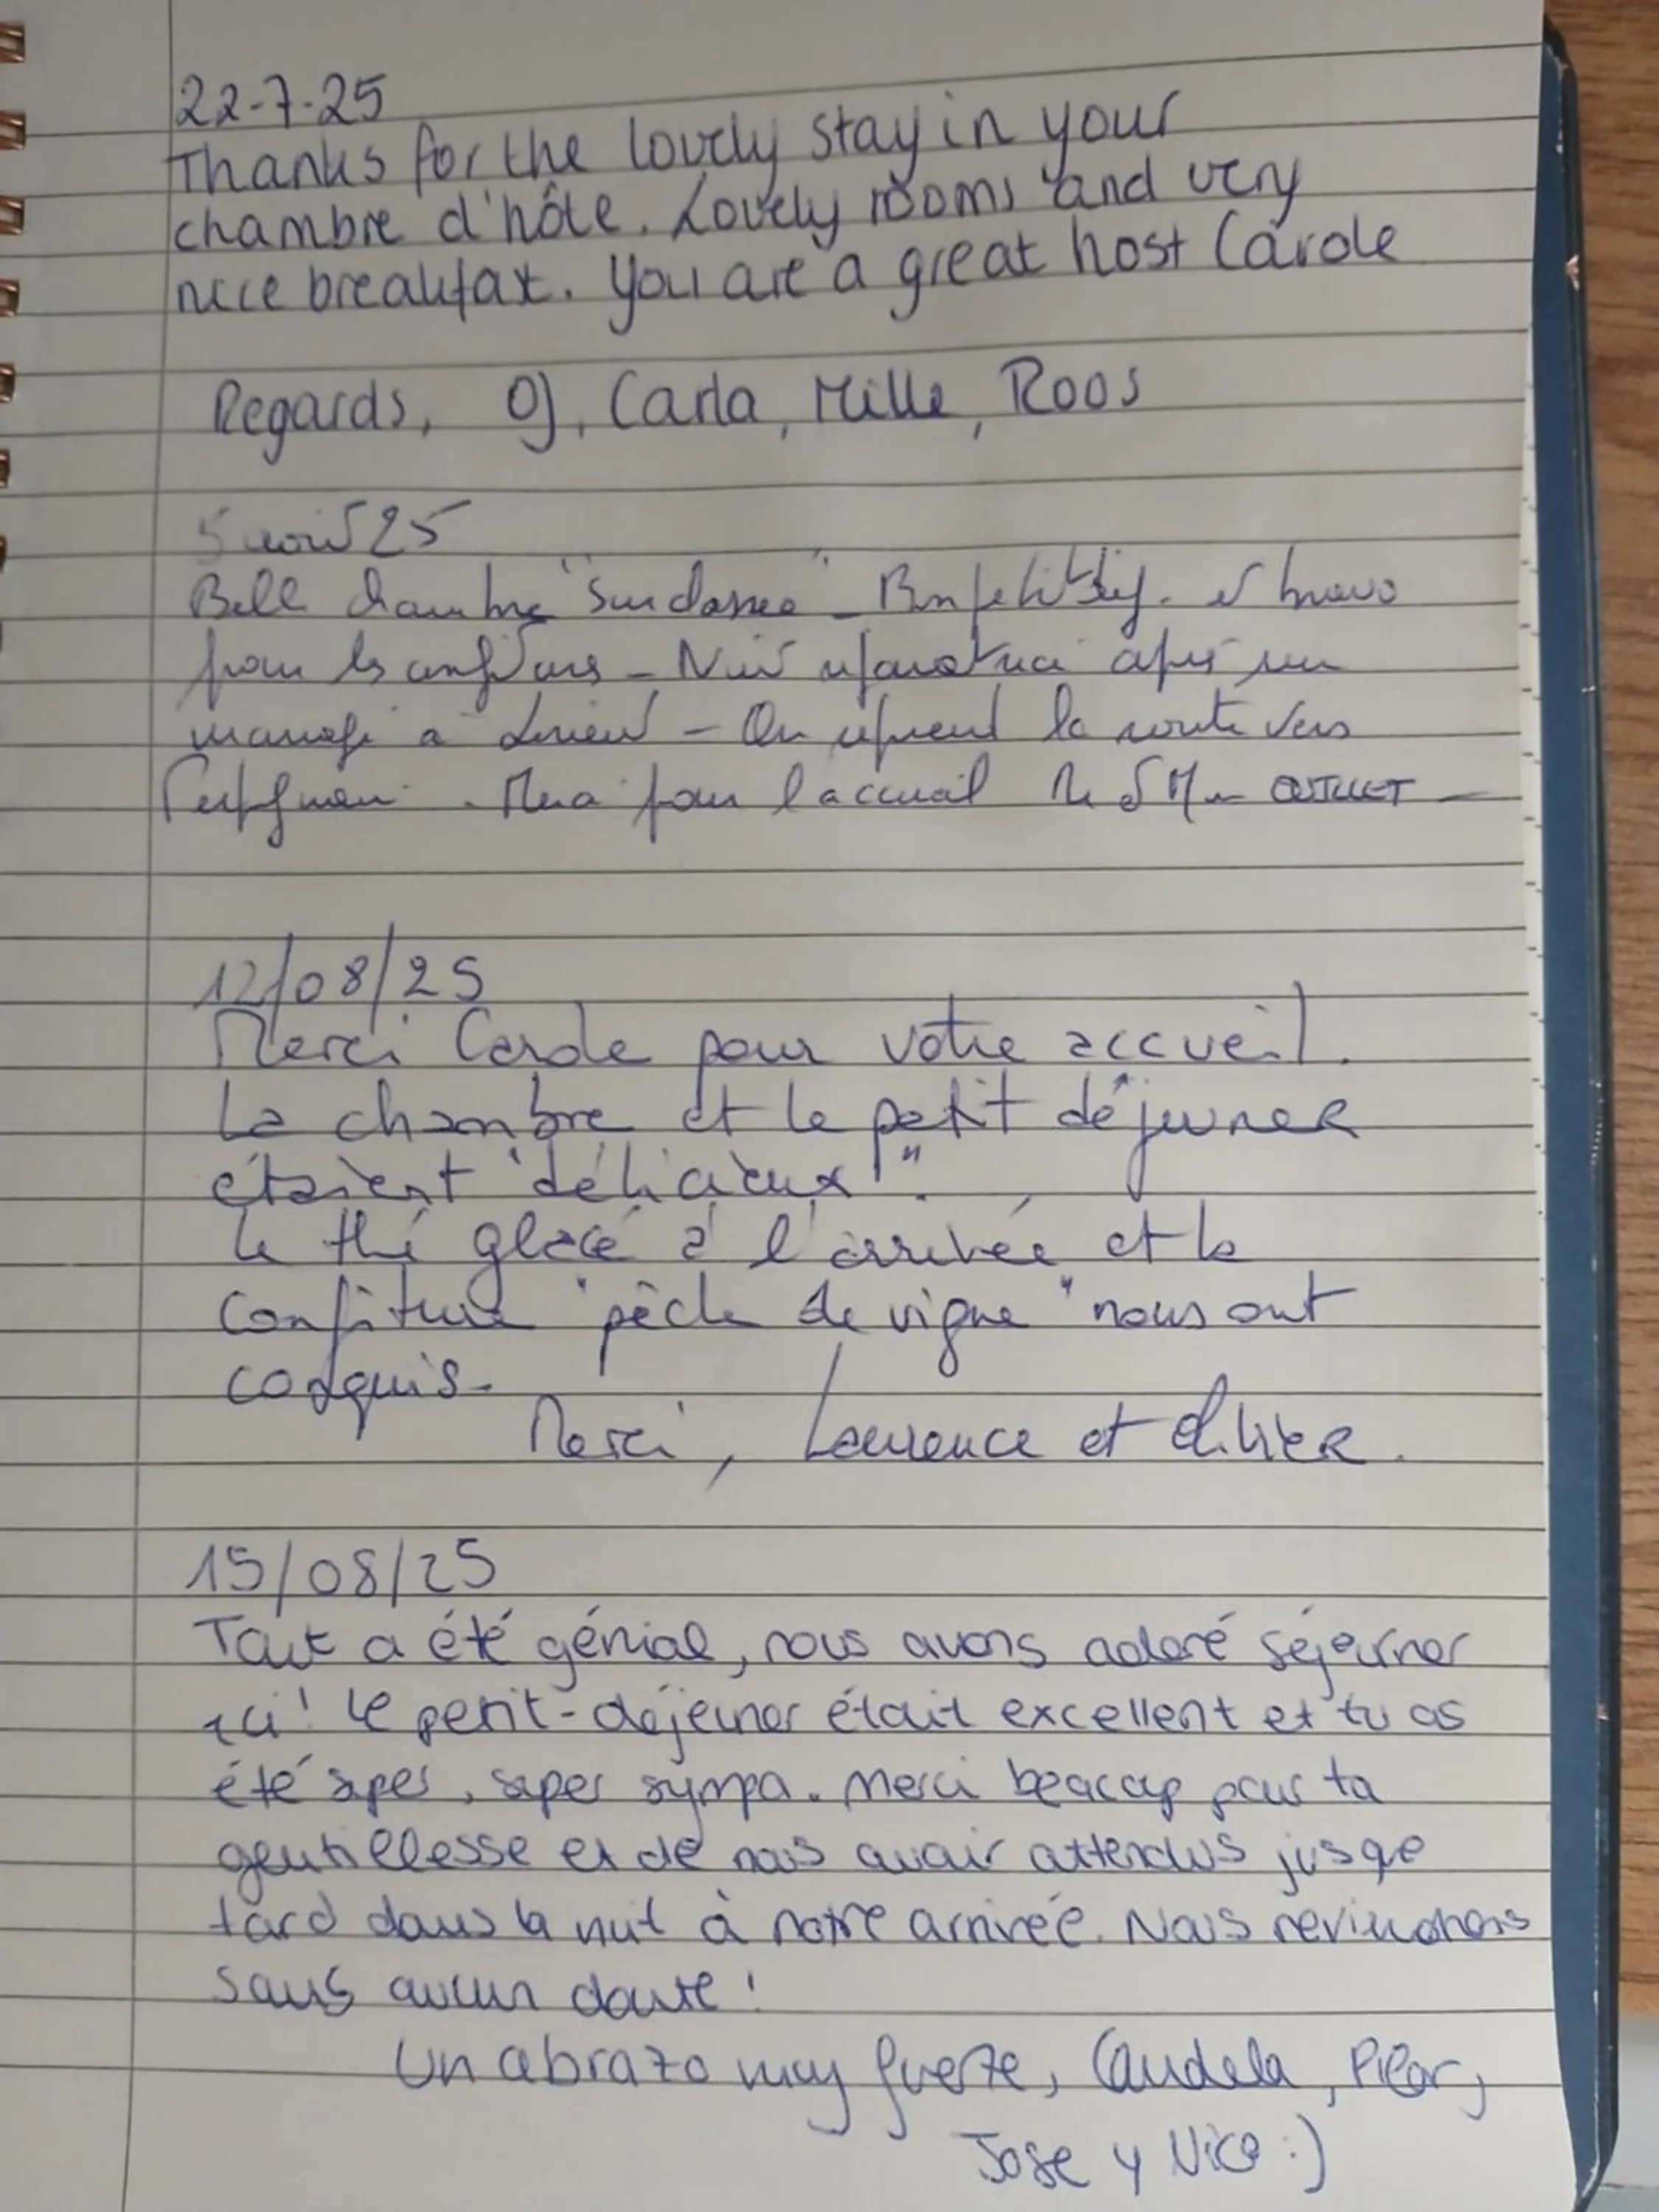 22-7-25
Thanks for the lovely stay in your
chambre d'hôte. Lovely rooms and very
nice breakfast. You are a great host Carole
Regards, OJ, Carla, Mille, Roos
5 août 25
Belle chambre "Sundance" - Bon petit déj. et bravo
pour les confitures - Nuit réparatrice après un
mariage à Lorient - On reprend la route vers
Perpignan. Merci pour l'accueil Mr et Mme
12/08/25
Merci Carole pour votre accueil.
La chambre et le petit déjeuner
étaient "délicieux!".
Le thé glacé à l'arrivée et la
confiture "pêche de vigne" nous ont
conquis.
Merci, Laurence et Olivier.
15/08/25
Tout a été génial, nous avons adoré séjourner
ici! Le petit-déjeuner était excellent et tu as
été super, super sympa. Merci beacoup pour ta
gentillesse et de nous avoir attendus jusque
tard dans la nuit à notre arrivée. Nous reviendrons
sans aucun doute!
Un abrazo muy fuerte, Candela, Pilar,
Jose y Nico :)